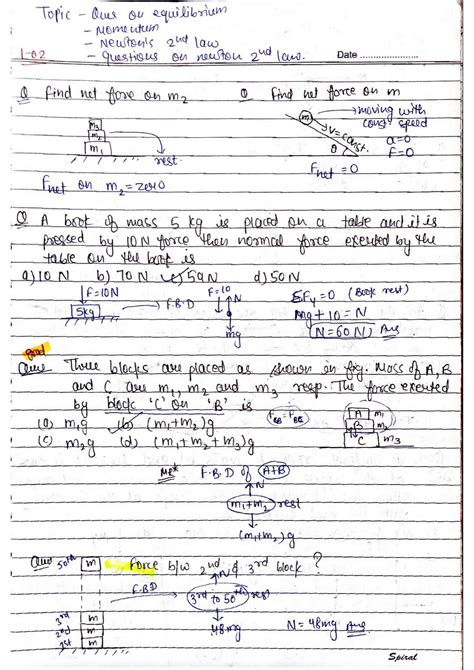 Topic - Ques on equilibrium
- Momentum
- Newton's 2nd law
- Questions on newton 2nd law.
L-02
Date
Q Find net force on m₂
m₃
m₂
m₁
rest.
Fnet on m₂ = zero
Q Find net force on m
m
moving with const speed
V=const.
θ
a=0
F=0
Fnet = 0
Q A book of mass 5 kg is placed on a table and it is
pressed by 10N force then normal force exerted by the
table on the book is
a) 10 N b) 70 N c) 59N d) 50N
F=10N
5kg
F.B.D
F=10
N
mg
ΣFy=0 (Book rest)
mg+10=N
N=60N Ans
good
Ques Three blocks are placed as shown in fig. Mass of A, B
and C are m₁, m₂ and m₃ resp. The force exerted
by block 'C' on 'B' is
(a) m₁g (b) (m₁+m₂)g
(c) m₂g (d) (m₁+m₂+m₃)g
A m₁
B m₂
C m₃
F.B.D of (A+B)
N
m₁+m₂ rest
(m₁+m₂)g
Ques
50th m
3rd m
2nd m
1st m
Force b/w 2nd & 3rd block ?
F.B.D
N
3rd to 50th rest
48mg
N = 48mg Ans
Spiral